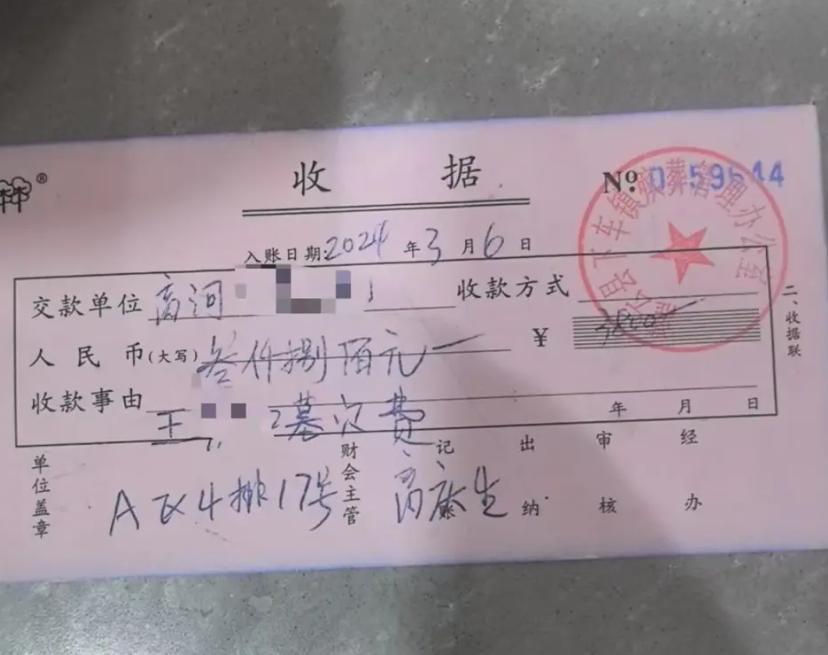 收据
№ 0159544
入账日期:2024年3月6日
交款单位 高河 收款方式
人民币(大写) 叁仟捌佰元 ¥ 3800
收款事由 王 墓穴费 年 月 日
二、收据联
单位盖章 财会主管 记 出纳 审核 经办
A区4排17号
下车镇殡葬管理办公室